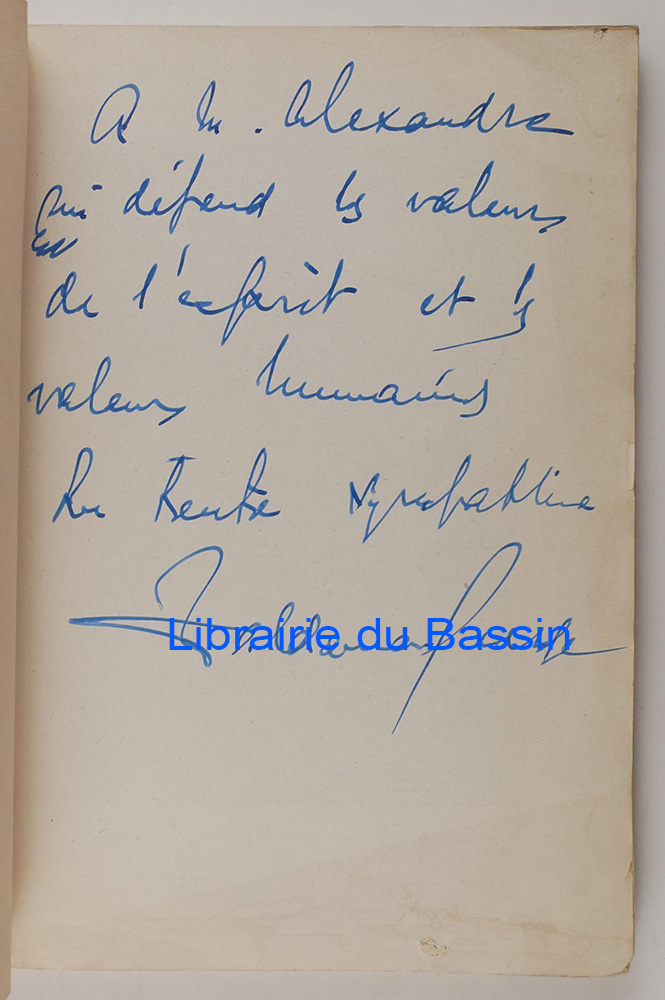 A M. Alexandre
qui défend les valeurs
de l'esprit et les
valeurs humaines
En toute sympathie
Librairie du Bassin